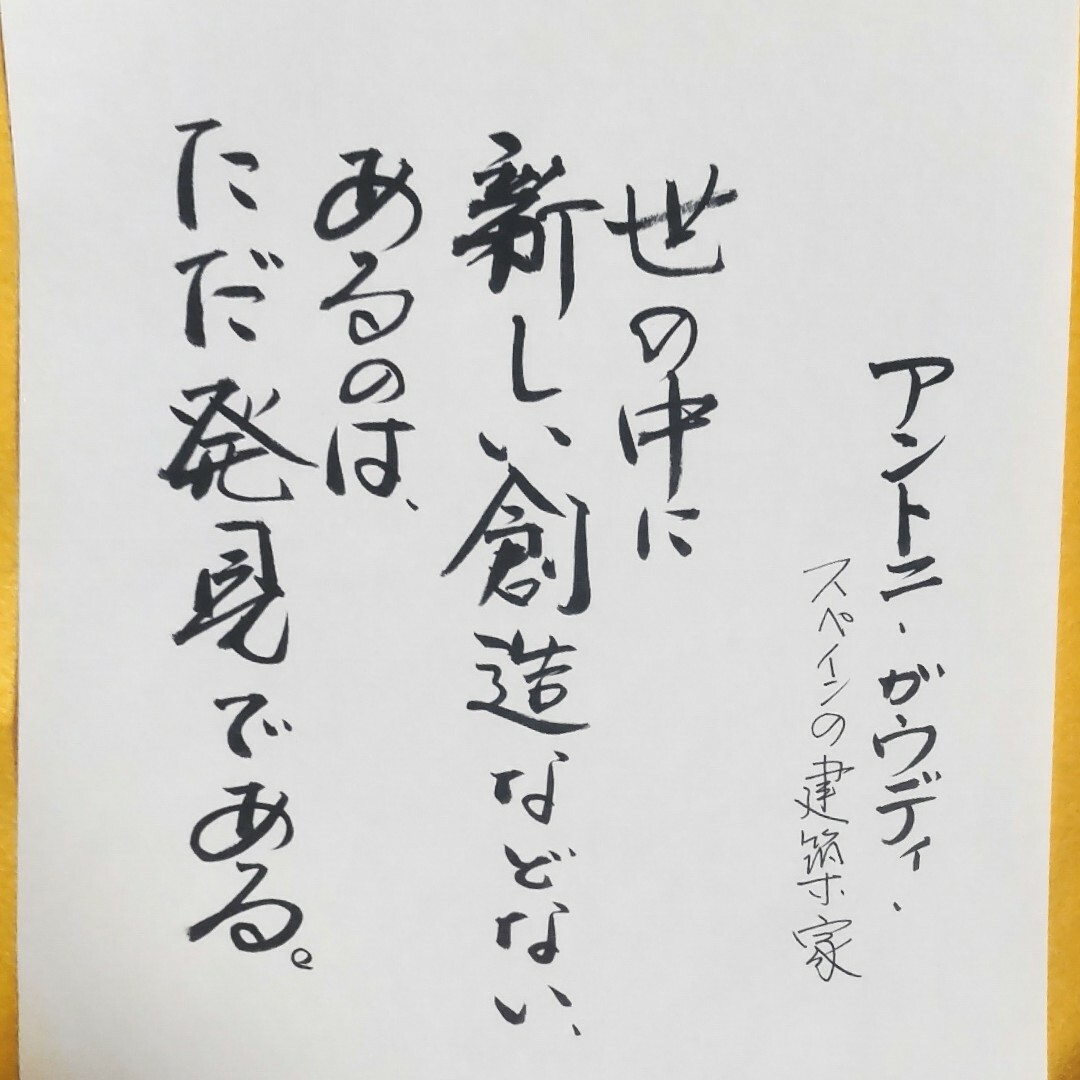 アントニ・ガウディ・
スペインの建築家
世の中に
新しい創造などない、
あるのは、
ただ発見である。